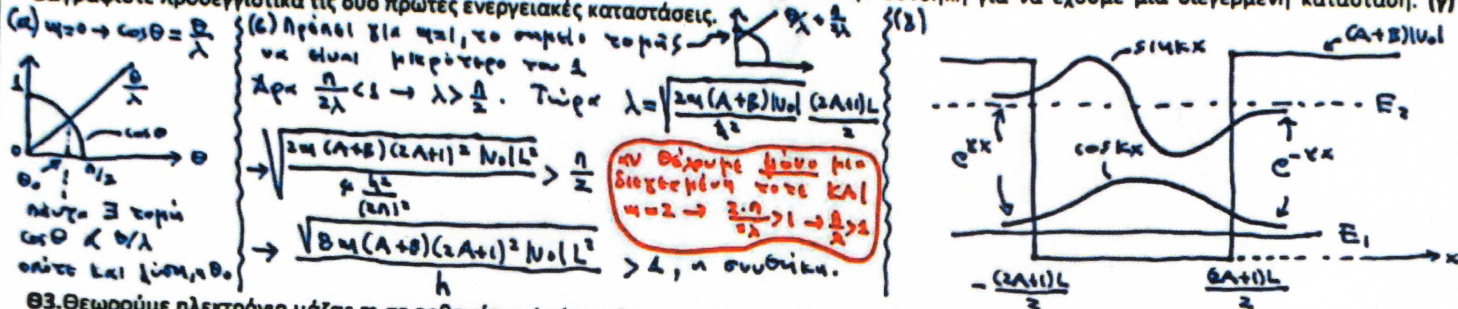 τις δυο πρώτες ενεργειακές καταστάσεις.
για να έχουμε μια διεγερμένη κατάσταση. (γ)
(α) m=0 → cosθ = θ/λ
1
θ/λ
cosθ
0
θ₀
π/2
θ
πάντα ∃ τομή
cosθ & θ/λ
οπότε και λύση, η θ₀
(β) Πρέπει για m=1, το σημείο τομής →
να είναι μικρότερο του 1
θ/λ + π/2λ
Άρα π/2λ < 1 → λ > π/2. Τώρα λ = √(2m(A+B)|V₀|/ħ²) (2A+1)L/2
→ √(2m(A+B)(2A+1)²|V₀|L² / 4 h²/(2π)²) > π/2
→ √(8m(A+B)(2A+1)²|V₀|L²) / h > 1, η συνθήκη.
αν θέλουμε μόνο μια
διεγερμένη τότε ΚΑΙ
m=2 → 2·π/2λ > 1 → π/λ > 1
(δ)
sinkx
(A+B)|V₀|
E₂
e^κx
coskx
e^-κx
E₁
x
-(2A+1)L/2
(2A+1)L/2
Θ3.Θεωρούμε ηλεκτρόνιο μάζας m